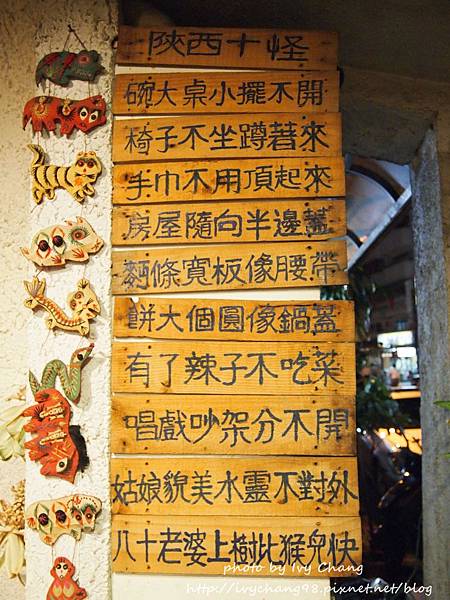 陝西十怪
碗大桌小擺不開
椅子不坐蹲著來
手巾不用頂起來
房屋隨向半邊蓋
麵條寬板像腰帶
餅大個圓像鍋蓋
有了辣子不吃菜
唱戲吵架分不開
姑娘貌美水靈不對外
八十老婆上樹比猴兒快
photo by Ivy Chang
http://ivychang98.pixnet.net/blog